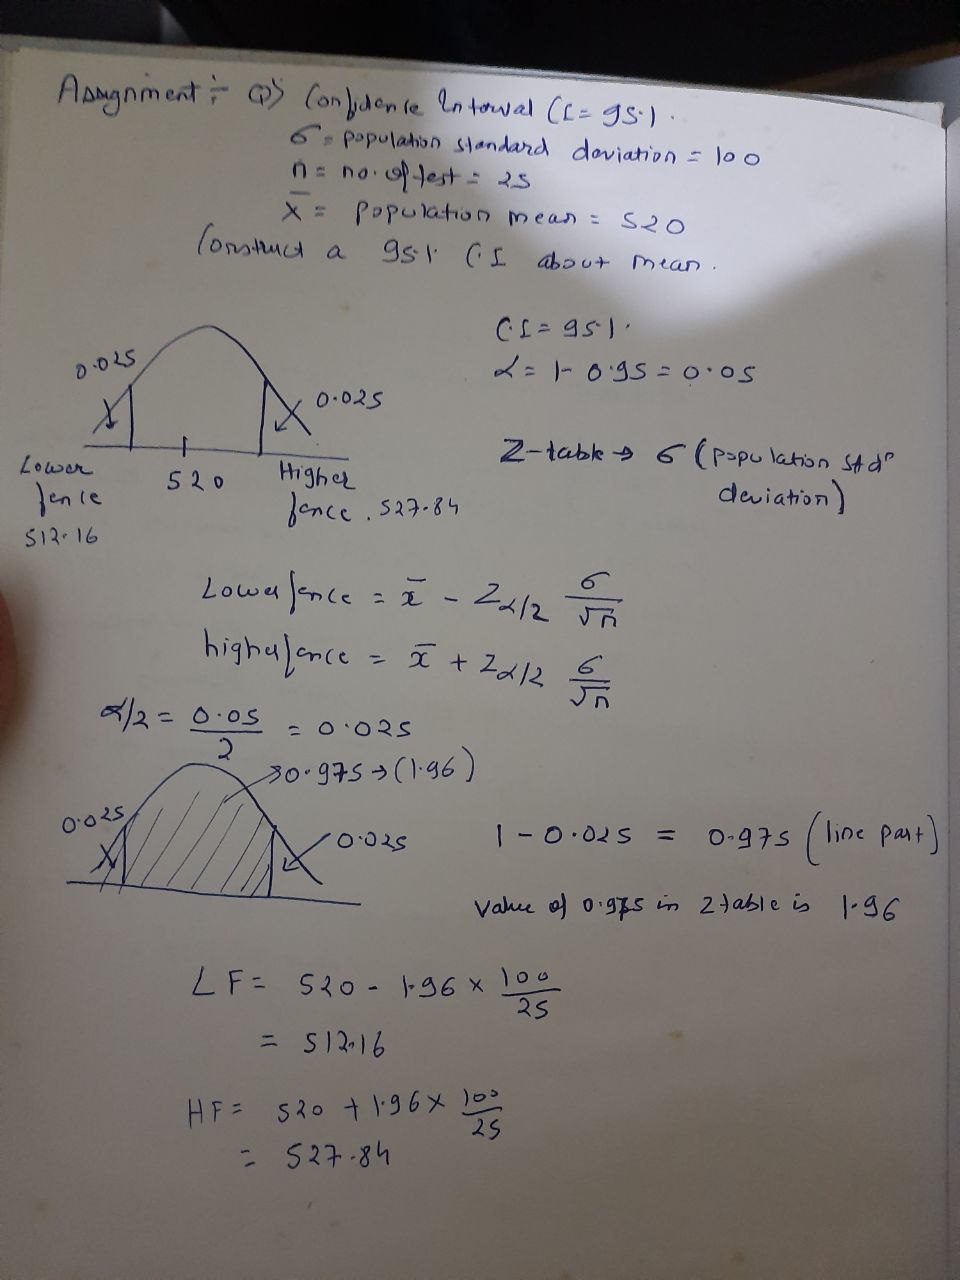 Assignment :- Q) Confidence Interval CI = 95%.
σ = population standard deviation = 100
n = no. of test = 25
x̄ = population mean = 520
Construct a 95% C.I about mean.
C.I = 95%.
α = 1 - 0.95 = 0.05
0.025
0.025
Z-table → σ (population std^n
deviation)
Lower
fence
512.16
520
Higher
fence. 527.84
Lower fence = x̄ - Zα/2 σ/√n
higher fence = x̄ + Zα/2 σ/√n
α/2 = 0.05/2 = 0.025
0.975 → (1.96)
0.025
0.025
1 - 0.025 = 0.975 (line part)
value of 0.975 in Z table is 1.96
LF = 520 - 1.96 × 100/25
= 512.16
HF = 520 + 1.96 × 100/25
= 527.84